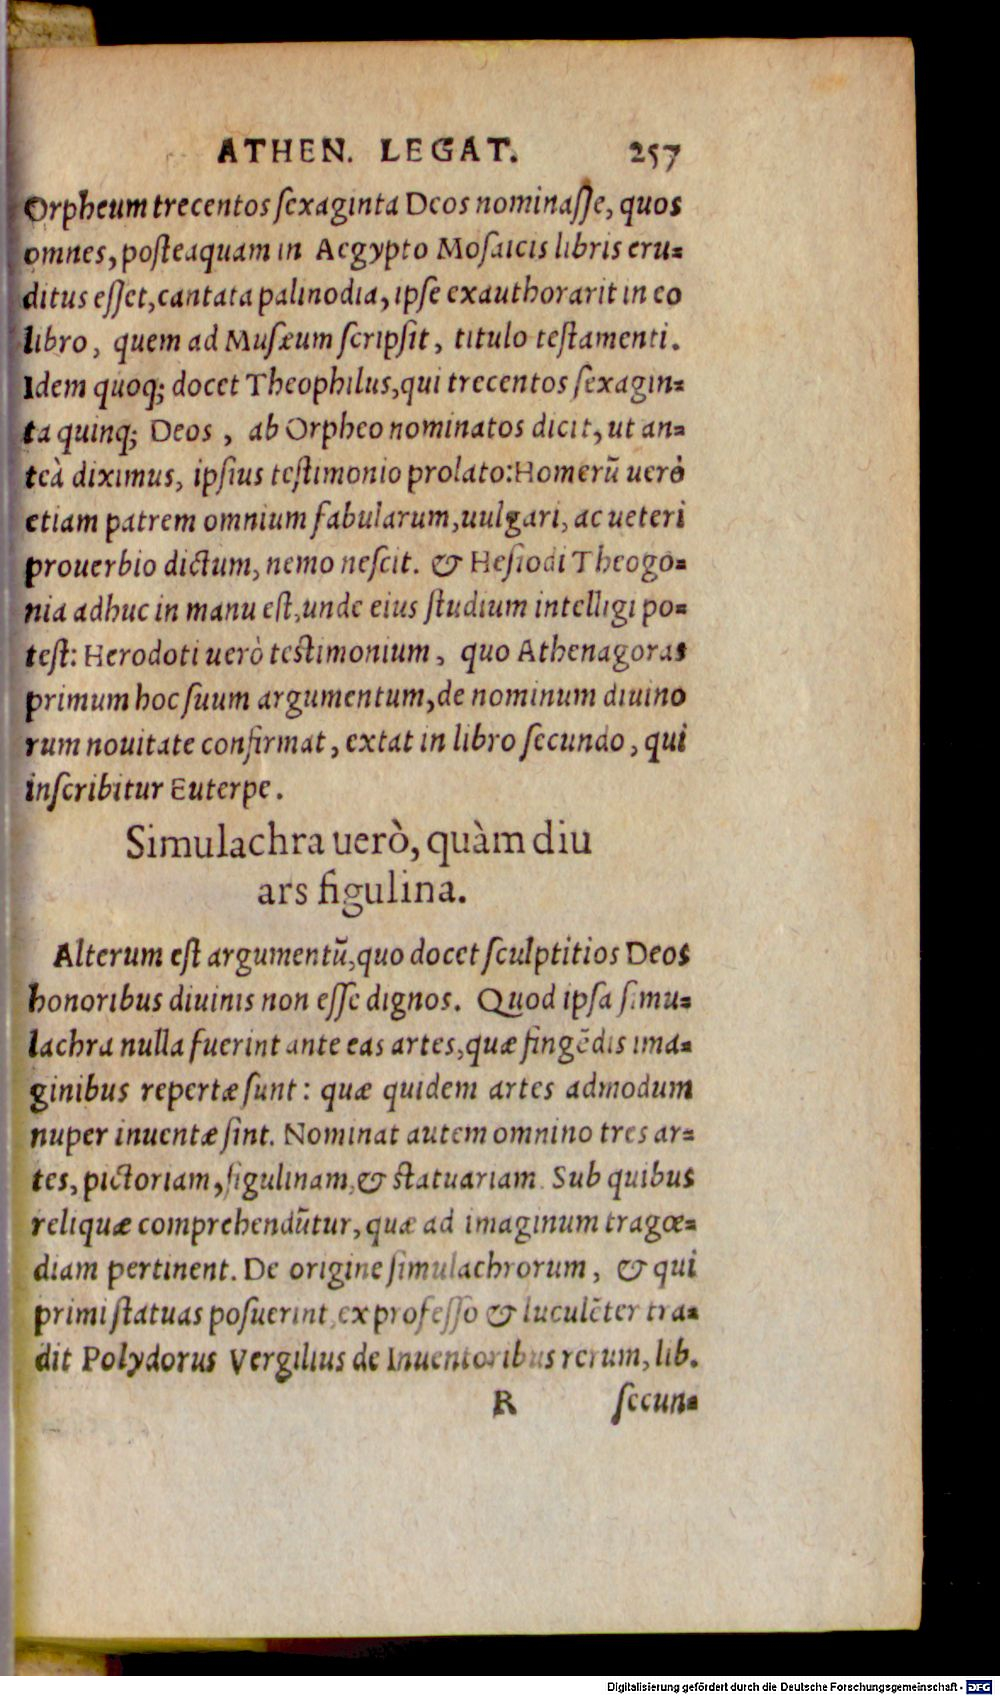 ATHEN. LEGAT. 257
Orpheum trecentos ſexaginta Deos nominaſſe, quos
omnes, poſteaquam in Aegypto Moſaicis libris eru-
ditus eſſet, cantata palinodia, ipſe exauthorarit in eo
libro, quem ad Muſæum ſcripſit, titulo teſtamenti.
Idem quoq; docet Theophilus, qui trecentos ſexagin-
ta quinq; Deos, ab Orpheo nominatos dicit, ut an-
teà diximus, ipſius teſtimonio prolato: Homerũ uerò
etiam patrem omnium fabularum, uulgari, ac ueteri
prouerbio dictum, nemo neſcit. & Heſiodi Theogo-
nia adhuc in manu eſt, unde eius ſtudium intelligi po-
teſt: Herodoti uerò teſtimonium, quo Athenagoras
primum hoc ſuum argumentum, de nominum diuino
rum nouitate confirmat, extat in libro ſecundo, qui
inſcribitur Euterpe.
Simulachra uerò, quàm diu
ars figulina.
Alterum eſt argumentũ, quo docet ſculptitios Deos
honoribus diuinis non eſſe dignos. Quod ipſa ſimu-
lachra nulla fuerint ante eas artes, quæ fingẽdis ima-
ginibus repertæ ſunt: quæ quidem artes admodum
nuper inuentæ ſint. Nominat autem omnino tres ar-
tes, pictoriam, figulinam, & ſtatuariam. Sub quibus
reliquæ comprehendũtur, quæ ad imaginum tragœ-
diam pertinent. De origine ſimulachrorum, & qui
primi ſtatuas poſuerint, ex profeſſo & luculẽter tra-
dit Polydorus Vergilius de Inuentoribus rerum, lib.
R ſecun-
Digitalisierung gefördert durch die Deutsche Forschungsgemeinschaft - DFG